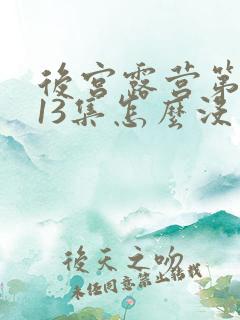 後宮露营第
13集怎麼没
後天之吻
未经同意禁止转载